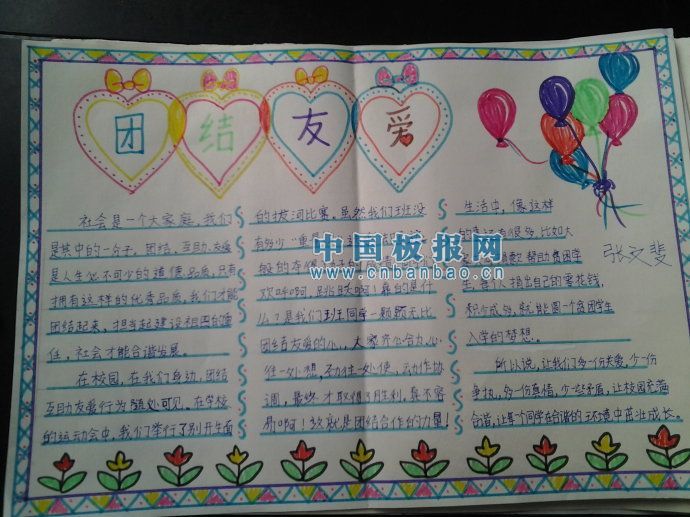 团 结 友 爱
社会是一个大家庭，我们
是其中的一份子。团结、互助、友爱
是人生必不可少的道德品质，只有
拥有这样的优秀品质，我们才能
团结起来，担当起建设祖国的重
任，社会才能合谐发展。
在校园，在我们身边，团结
互助友爱行为随处可见。在学校
的运动会中，我们举行了别开生面
的拔河比赛，虽然我们班没
有多少“重量
欢呼啊，跳跃啊！靠的是什
么？是我们班主同学一颗颗无比
团结友爱的心。大家齐心合力，心
往一处想，劲往一处使，动作协
调，最终才取得了胜利，真不容
易啊！这就是团结合作的力量！
生活中，像这样
的事还有很多，比如大
帮助贫困学
生，每人捐出自己的零花钱，
积少成多，就能圆一个贫困学生
入学的梦想。
所以说，让我们多一份关爱，少一份
争执，多一份真情，少一些矛盾，让校园充满
合谐，让每个同学在合谐的环境中茁壮成长。
张文斐
中国板报网
www.cnbanbao.cn